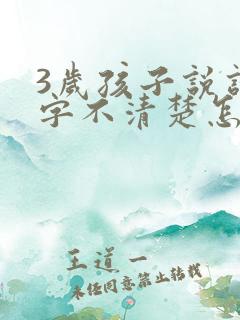 3歲孩子說
字不清楚怎
王道一
未經同意禁止轉載